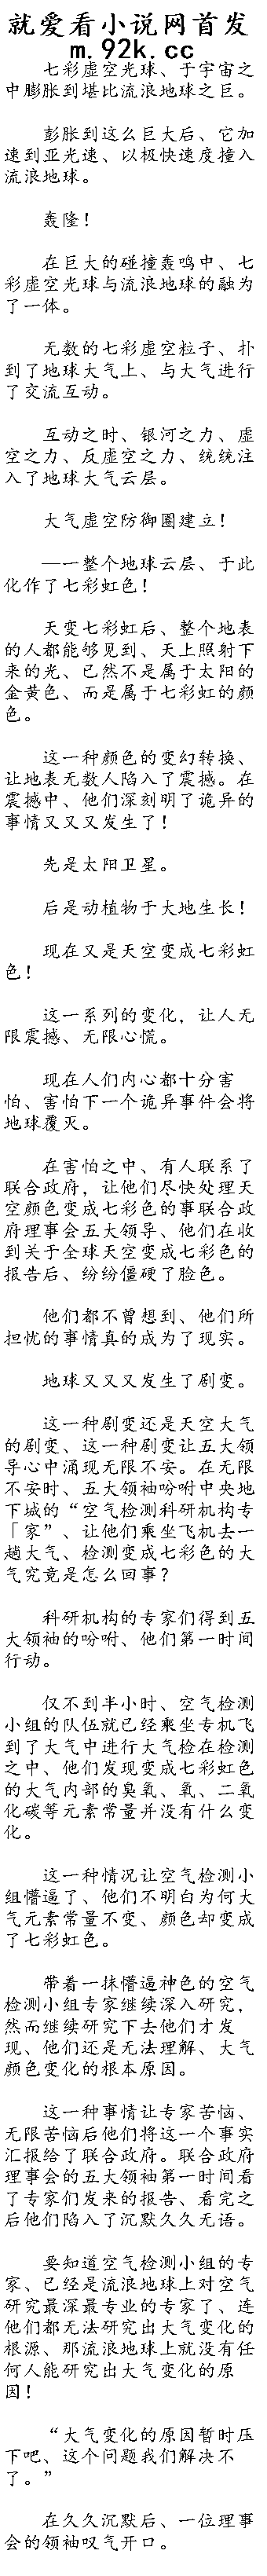 就爱看小说网首发
m.92k.cc
七彩虚空光球、于宇宙之
中膨胀到堪比流浪地球之巨。
彭胀到这么巨大后、它加
速到亚光速、以极快速度撞入
流浪地球。
轰隆！
在巨大的碰撞轰鸣中、七
彩虚空光球与流浪地球的融为
了一体。
无数的七彩虚空粒子、扑
到了地球大气上、与大气进行
了交流互动。
互动之时、银河之力、虚
空之力、反虚空之力、统统注
入了地球大气云层。
大气虚空防御圈建立！
—一整个地球云层、于此
化作了七彩虹色！
天变七彩虹后、整个地表
的人都能够见到、天上照射下
来的光、已然不是属于太阳的
金黄色、而是属于七彩虹的颜
色。
这一种颜色的变幻转换、
让地表无数人陷入了震撼。在
震撼中、他们深刻明了诡异的
事情又又又发生了！
先是太阳卫星。
后是动植物于大地生长！
现在又是天空变成七彩虹
色！
这一系列的变化，让人无
限震撼、无限心慌。
现在人们内心都十分害
怕、害怕下一个诡异事件会将
地球覆灭。
在害怕之中、有人联系了
联合政府，让他们尽快处理天
空颜色变成七彩色的事联合政
府理事会五大领导、他们在收
到关于全球天空变成七彩色的
报告后、纷纷僵硬了脸色。
他们都不曾想到、他们所
担忧的事情真的成为了现实。
地球又又又发生了剧变。
这一种剧变还是天空大气
的剧变、这一种剧变让五大领
导心中涌现无限不安。在无限
不安时、五大领袖吩咐中央地
下城的“空气检测科研机构专
「家”、让他们乘坐飞机去一
趟大气、检测变成七彩色的大
气究竟是怎么回事？
科研机构的专家们得到五
大领袖的吩咐、他们第一时间
行动。
仅不到半小时、空气检测
小组的队伍就已经乘坐专机飞
到了大气中进行大气检在检测
之中、他们发现变成七彩虹色
的大气内部的臭氧、氧、二氧
化碳等元素常量并没有什么变
化。
这一种情况让空气检测小
组懵逼了、他们不明白为何大
气元素常量不变、颜色却变成
了七彩虹色。
带着一抹懵逼神色的空气
检测小组专家继续深入研究，
然而继续研究下去他们才发
现、他们还是无法理解、大气
颜色变化的根本原因。
这一种事情让专家苦恼、
无限苦恼后他们将这一个事实
汇报给了联合政府。联合政府
理事会的五大领袖第一时间看
了专家们发来的报告、看完之
后他们陷入了沉默久久无语。
要知道空气检测小组的专
家、已经是流浪地球上对空气
研究最深最专业的专家了、连
他们都无法研究出大气变化的
根源、那流浪地球上就没有任
何人能研究出大气变化的原
因！
“大气变化的原因暂时压
下吧、这个问题我们解决不
了。”
在久久沉默后、一位理事
会的领袖叹气开口。